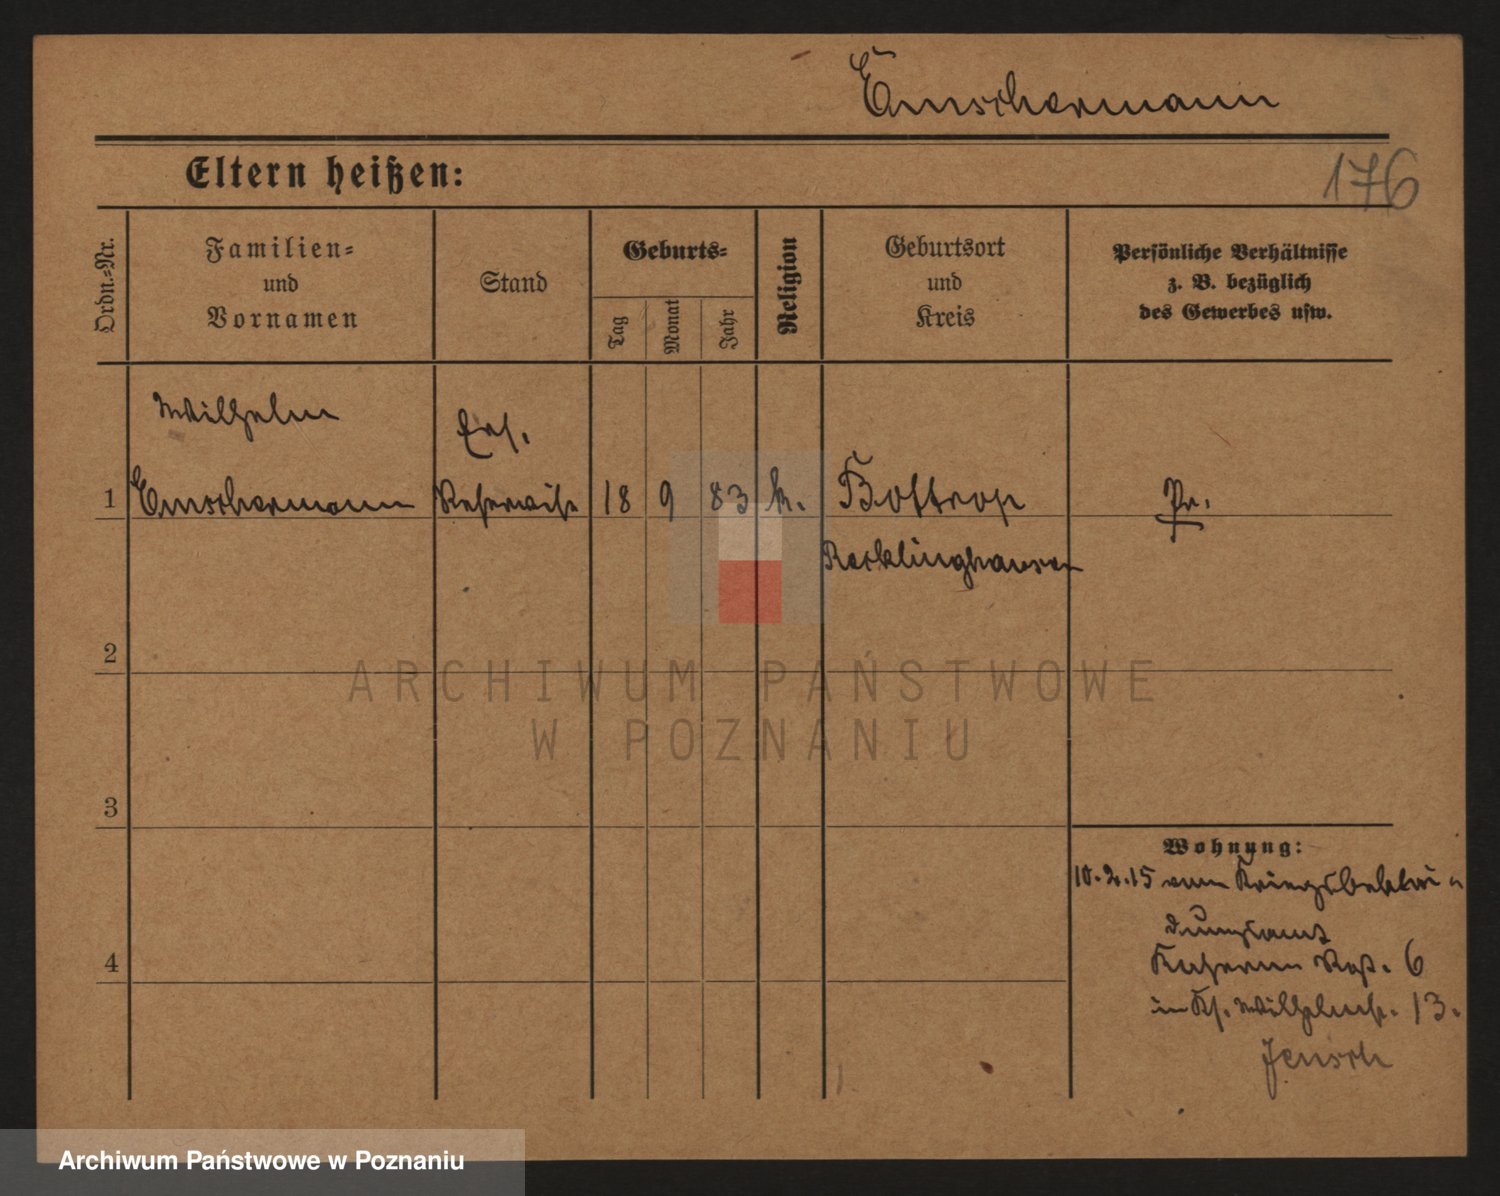 Emschermann
Eltern heißen:
176
Ordn.=Nr.
Familien=
und
Vornamen
Stand
Geburts=
Tag
Monat
Jahr
Religion
Geburtsort
und
Kreis
Persönliche Verhältnisse
z. B. bezüglich
des Gewerbes usw.
Wilhelm
Ers.
1 Emschermann Reservist 18 9 83 k. Bottrop Pr.
Recklinghausen
2
ARCHIWUM PAŃSTWOWE
W POZNANIU
3
Wohnung:
10.2.15 vom Kriegsbeklei
dungsamt
Kaserne 6
in Wilhelmstr. 13.
Jensch
4
Archiwum Państwowe w Poznaniu